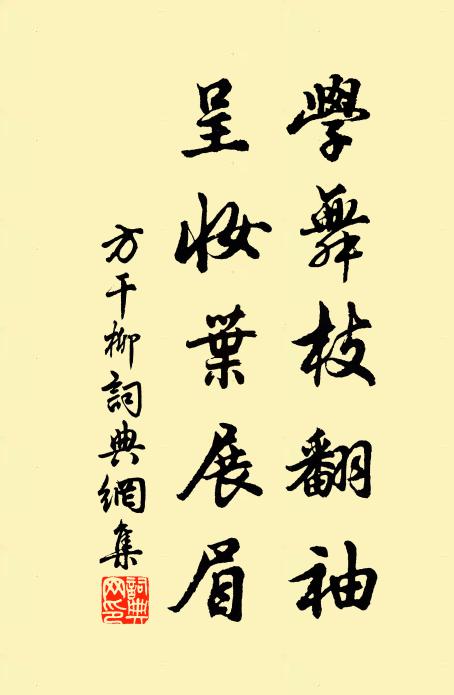 學舞枝翻袖
呈妝葉展眉
方干柳詞典網集
詞典網印